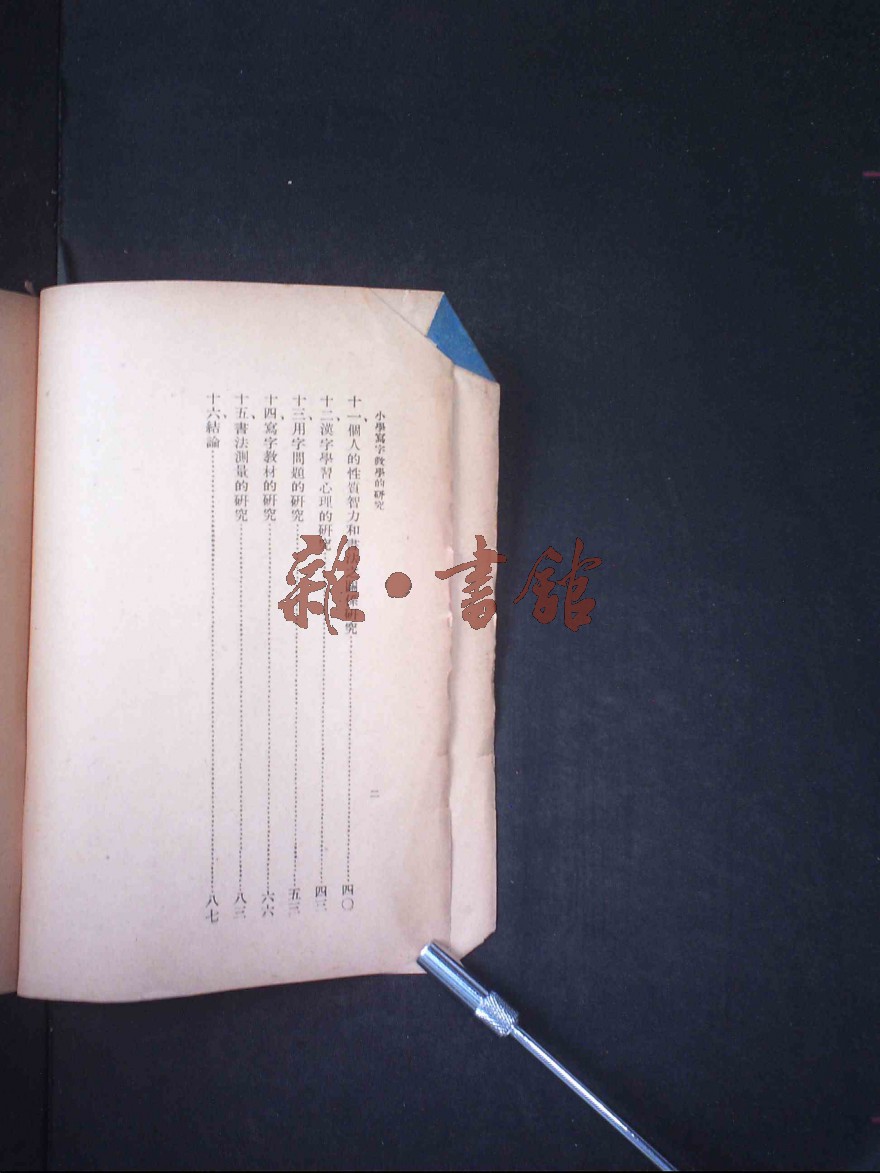 小學寫字教學的研究
二
十一、個人的性質智力和書法 研究⋯⋯四〇
十二、漢字學習心理的研究⋯⋯四三
十三、用字問題的研究⋯⋯五三
十四、寫字教材的研究⋯⋯六六
十五、書法測量的研究⋯⋯八三
十六、結論⋯⋯八七
雜·書館